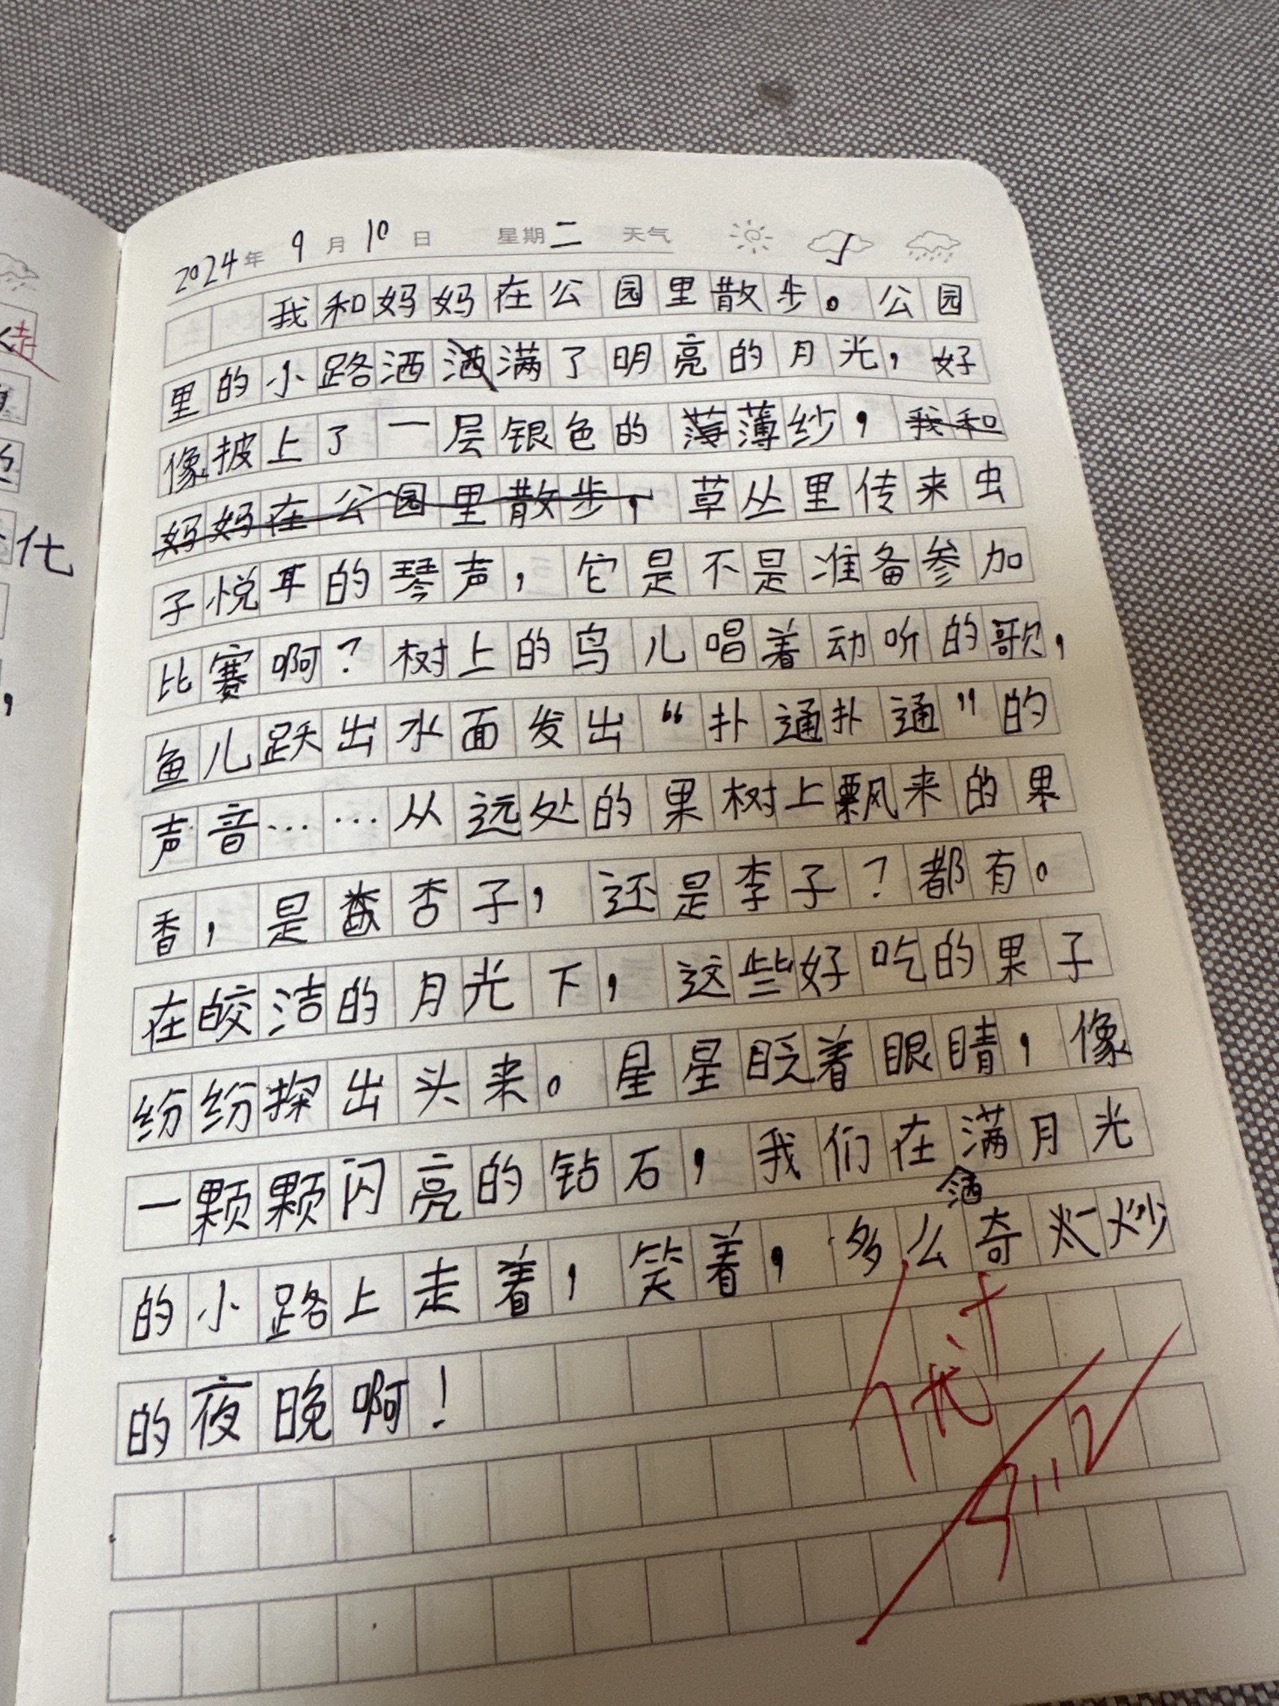 2024年 9月 10日 星期二 天气
我和妈妈在公园里散步。公园
里的小路洒洒满了明亮的月光，好
像披上了一层银色的薄薄纱，我和
妈妈在公园里散步，草丛里传来虫
子悦耳的琴声，它是不是准备参加
比赛啊？树上的鸟儿唱着动听的歌，
鱼儿跃出水面发出“扑通扑通”的
声音……从远处的果树上飘来的果
香，是杏子，还是李子？都有。
在皎洁的月光下，这些好吃的果子
纷纷探出头来。星星眨着眼睛，像
一颗颗闪亮的钻石，我们在满月光
洒
的小路上走着，笑着，多么奇
的夜晚啊！
优+
9.12
走
化
，